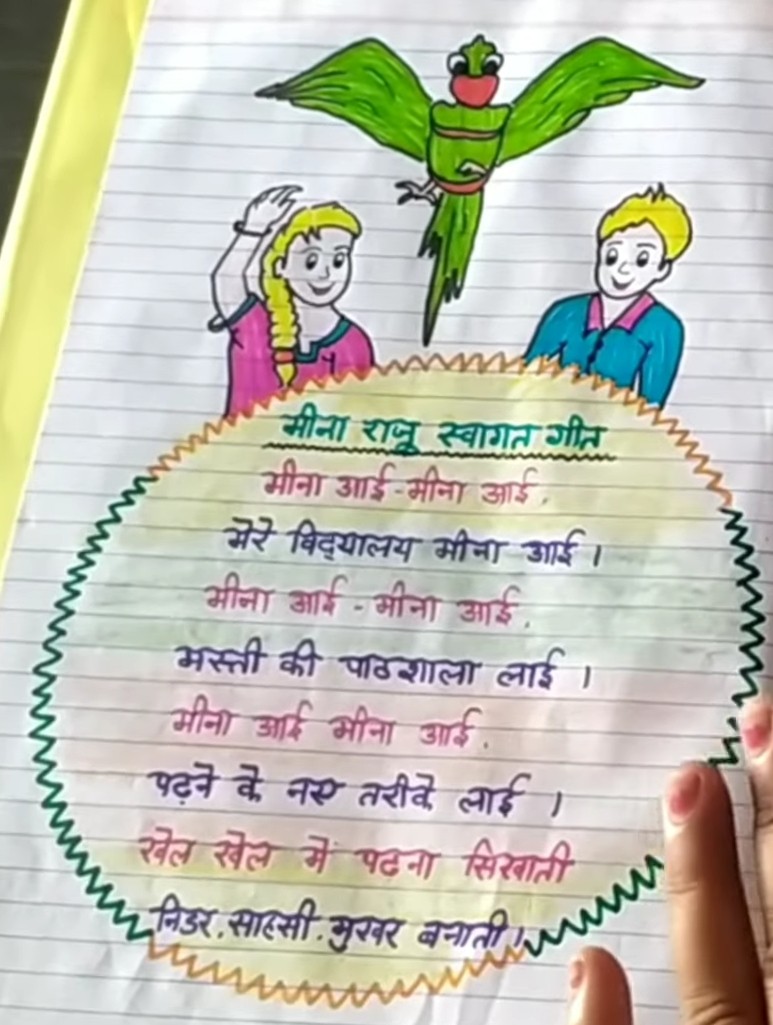 मीना राजू स्वागत गीत
मीना आई-मीना आई.
मेरे विद्यालय मीना आई।
मीना आई - मीना आई.
मस्ती की पाठशाला लाई।
मीना आई मीना आई.
पढ़ने के नए तरीके लाई।
खेल खेल में पढना सिखाती
निडर, साहसी, मुखर बनाती।